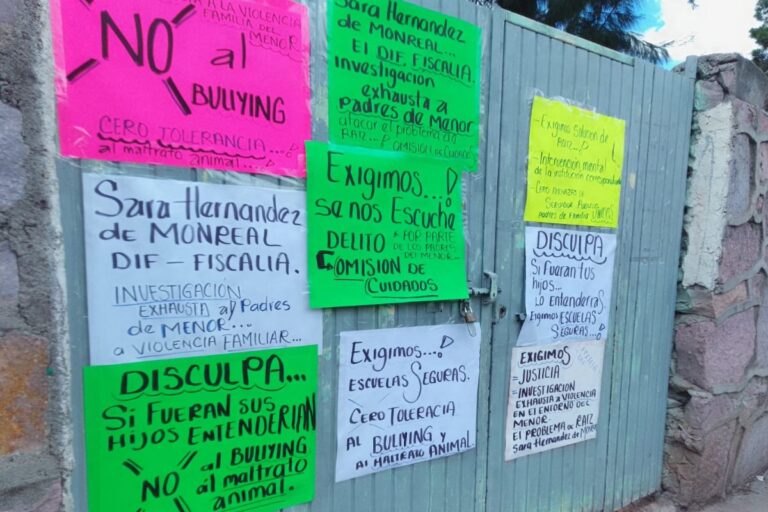 A LA VIOLENCIA
FAMILIA DEL
MENOR.
NO al
BULIYING
CERO TOLERANCIA...
al maltrato animal...
Sara Hernandez
de MONREAL...
El DIF, FISCALIA.
investigación
exhausta al
Padres de Menor
atacar el problema de
RAIZ...
OMISION de Cuidados
Exigimos...
se nos Escuche
DELITO
* POR PARTE
DE LOS PADRES
DEL MENOR...
OMISION DE
CUIDADOS
- Exigimos Solución de
RAIZ...
- Intervención mental
de la institución correspondiente
- Cero
Servidor Público
padres de Familia
Sara Hernandez
de MONREAL
DIF - FISCALIA.
INVESTIGACIÓN
EXHAUSTA al Padres
de MENOR...
a VIOLENCIA FAMILIAR...
DISCULPA
Si Fueran tus
hijos...
Lo entenderías
Exigimos ESCUELAS
SEGURAS...
DISCULPA...
Si FUERAN SUS
HIJOS ENTENDERIAN
NO al BULIYING
al maltrato
animal.
Exigimos...
ESCUELAS SEGURAS.
CERO TOLERACIA
AL BULIYING Y
Al MALTRATO ANIMAL
EXIGIMOS
= JUSTICIA
= INVESTIGACIÓN
EXHAUSTA a VIOLENCIA
EN EL ENTORNO DEL
MENOR.
El PROBLEMA de RAIZ
Sara Hernandez de